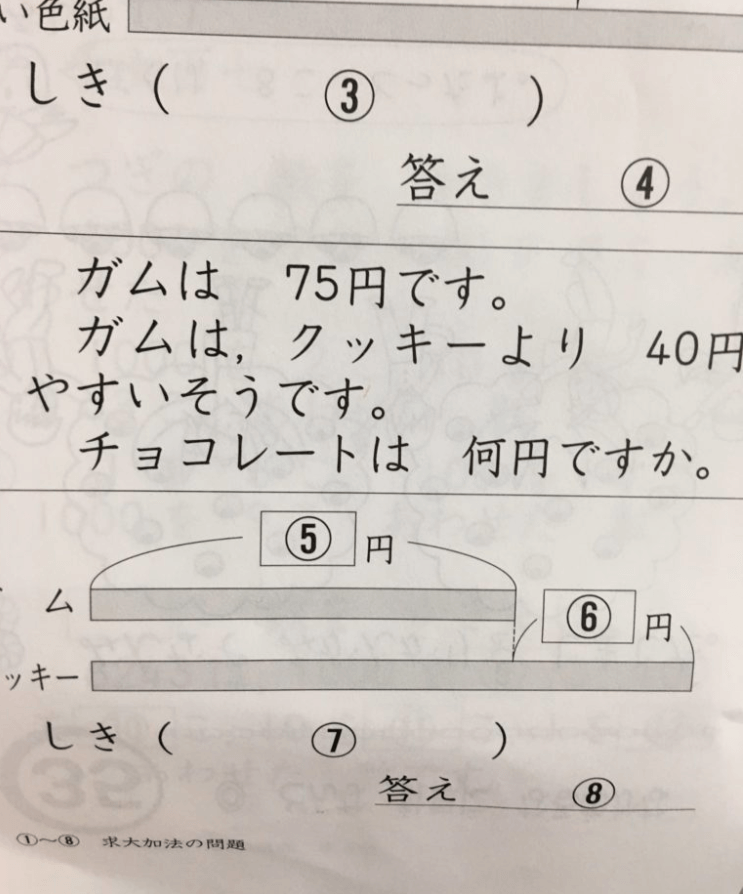 い色紙
しき（ ③ ）
答え ④
ガムは 75円です。
ガムは，クッキーより 40円
やすいそうです。
チョコレートは 何円ですか。
⑤ 円
ム
⑥ 円
ッキー
しき（ ⑦ ）
答え ⑧
①〜⑧ 求大加法の問題